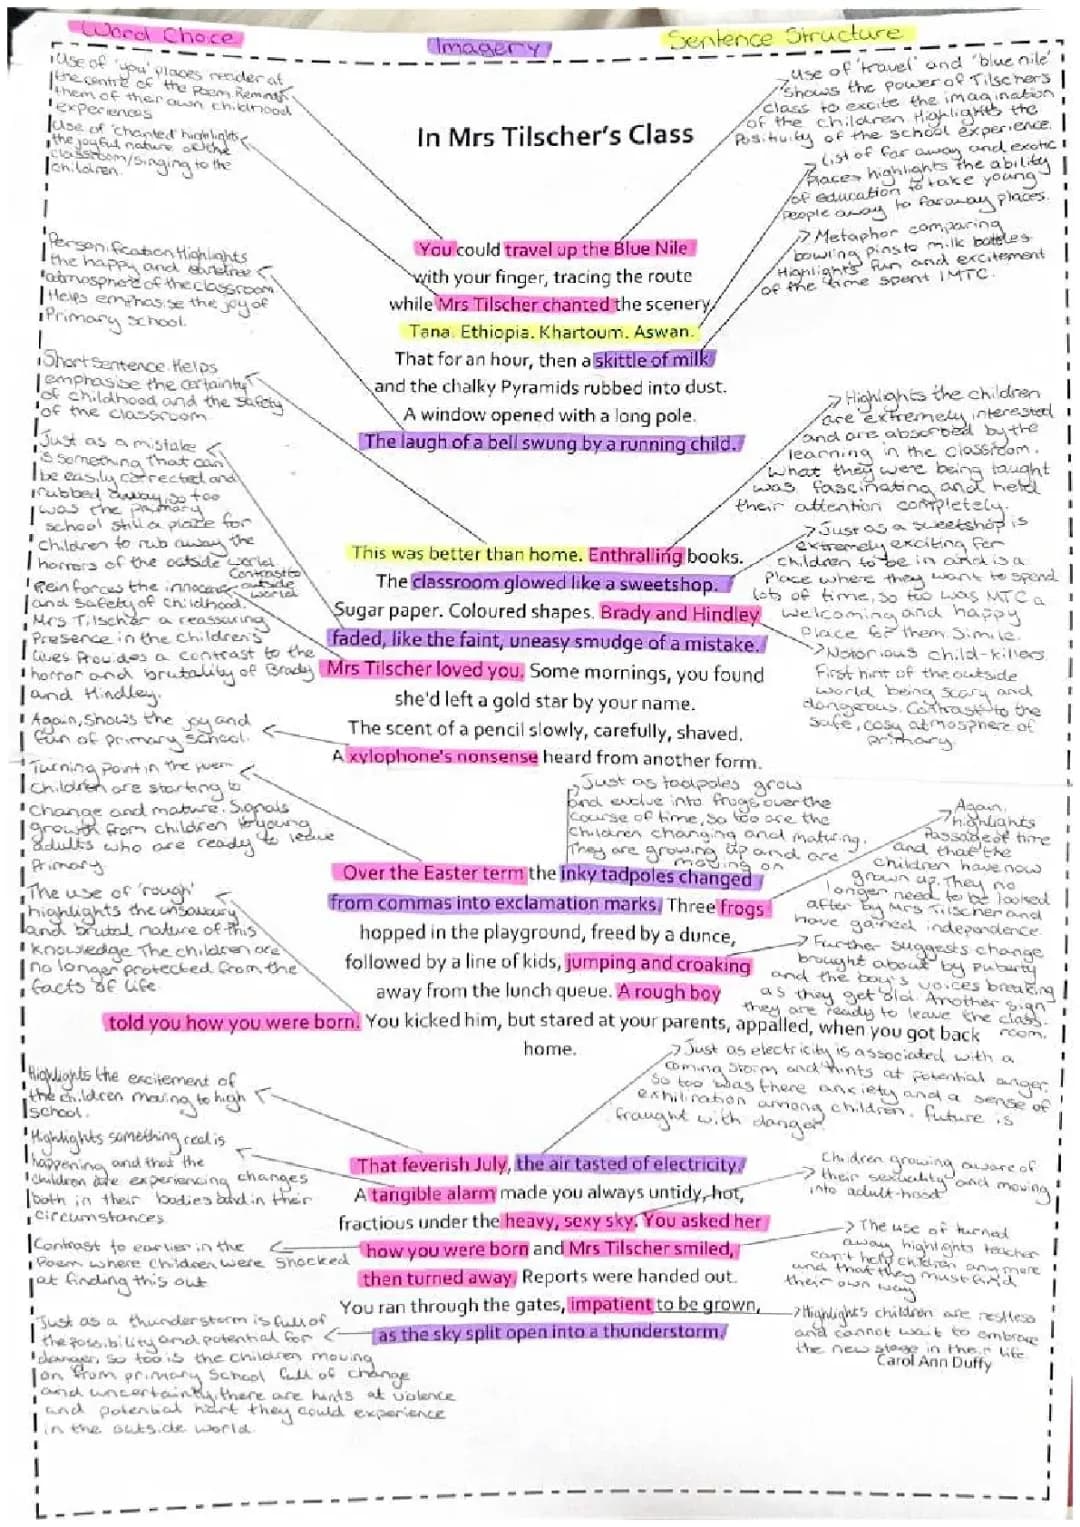 Word Choice
Imagery
Sentence Structure
Use of 'you' places reader at
the centre of the Poem. Reminds
them of their own childhood
experiences
Use of 'chanted' highlights
the joyful nature of the
classroom/singing to the
children.
Personification Highlights
the happy and carefree
atmosphere of the classroom
Helps emphasise the joy of
Primary School.
Short sentence. Helps
emphasise the certainty
of childhood and the safety
of the classroom
Just as a mistake
is something that can
be easily corrected and
rubbed away, so too
was the primary
school still a place for
children to rub away the
horrors of the outside world
Contrast to
outside
world
Reinforces the innocence
and safety of childhood.
Mrs Tilscher a reassuring
Presence in the children's
lives Provides a contrast to the
horror and brutality of Brady
and Hindley.
Again, shows the joy and
fun of primary school.
Turning Point in the poem
children are starting to
change and mature. Signals
growth from children to young
adults who are ready to leave
Primary
The use of 'rough'
highlights the unsavoury
and brutal nature of this
knowledge The children are
no longer protected from the
facts of life
Highlights the excitement of
the children moving to high
school.
Highlights something real is
happening and that the
children are experiencing changes
both in their bodies and in their
circumstances
Contrast to earlier in the
Poem where children were shocked
at finding this out
Just as a thunderstorm is full of
the possibility and potential for
danger, so too is the children moving
on from primary School full of change
and uncertainty, there are hints at violence
and potential hurt they could experience
in the outside world
In Mrs Tilscher's Class
You could travel up the Blue Nile
with your finger, tracing the route
while Mrs Tilscher chanted the scenery.
Tana. Ethiopia. Khartoum. Aswan.
That for an hour, then a skittle of milk
and the chalky Pyramids rubbed into dust.
A window opened with a long pole.
The laugh of a bell swung by a running child.
This was better than home. Enthralling books.
The classroom glowed like a sweetshop.
Sugar paper. Coloured shapes. Brady and Hindley
faded, like the faint, uneasy smudge of a mistake.
Mrs Tilscher loved you. Some mornings, you found
she'd left a gold star by your name.
The scent of a pencil slowly, carefully, shaved.
A xylophone's nonsense heard from another form.
Over the Easter term the inky tadpoles changed
from commas into exclamation marks. Three frogs
hopped in the playground, freed by a dunce,
followed by a line of kids, jumping and croaking
away from the lunch queue. A rough boy
told you how you were born. You kicked him, but stared at your parents, appalled, when you got back
home.
That feverish July, the air tasted of electricity.
A tangible alarm made you always untidy, hot,
fractious under the heavy, sexy sky. You asked her
how you were born and Mrs Tilscher smiled,
then turned away. Reports were handed out.
You ran through the gates, impatient to be grown,
as the sky split open into a thunderstorm.
Carol Ann Duffy
Use of 'travel' and 'blue nile'
shows the power of Tilschers
class to excite the imagination
of the children. Highlights the
Positivity of the school experience.
List of far away and exotic
Places highlights the ability
of education to take young
People away to faraway places.
Metaphor comparing
bowling pins to milk bottles
Highlights fun and excitement
of the time spent IMTC.
Highlights the children
are extremely interested
and are absorbed by the
learning in the classroom.
What they were being taught
was fascinating and held
their attention completely.
Just as a sweetshop is
extremely exciting for
children to be in and is a
Place where they want to spend
lots of time, so too was MTC a
welcoming and happy
place for them. Simile.
Notorious child-killers.
First hint of the outside
world being scary and
dangerous. Contrast to the
safe, cosy atmosphere of
primary.
Just as tadpoles grow
and evolve into frogs over the
course of time, so too are the
children changing and maturing.
They are growing up and are
moving on
Again,
highlights
Passage of time
and that the
children have now
grown up. They no
longer need to be looked
after by Mrs Tilscher and
have gained independence.
Further suggests change
brought about by Puberty
and the boy's voices breaking
as they get old. Another sign
they are ready to leave the class
room.
Just as electricity is associated with a
coming storm and hints at potential anger,
so too was there anxiety and a sense of
exhiliration among children. Future is
fraught with danger
Children growing aware of
their sexuality and moving
into adult-hood
The use of turned
away highlights teacher
can't help children any more
and that they must find
their own way
Highlights children are restless
and cannot wait to embrace
the new stage in their life.